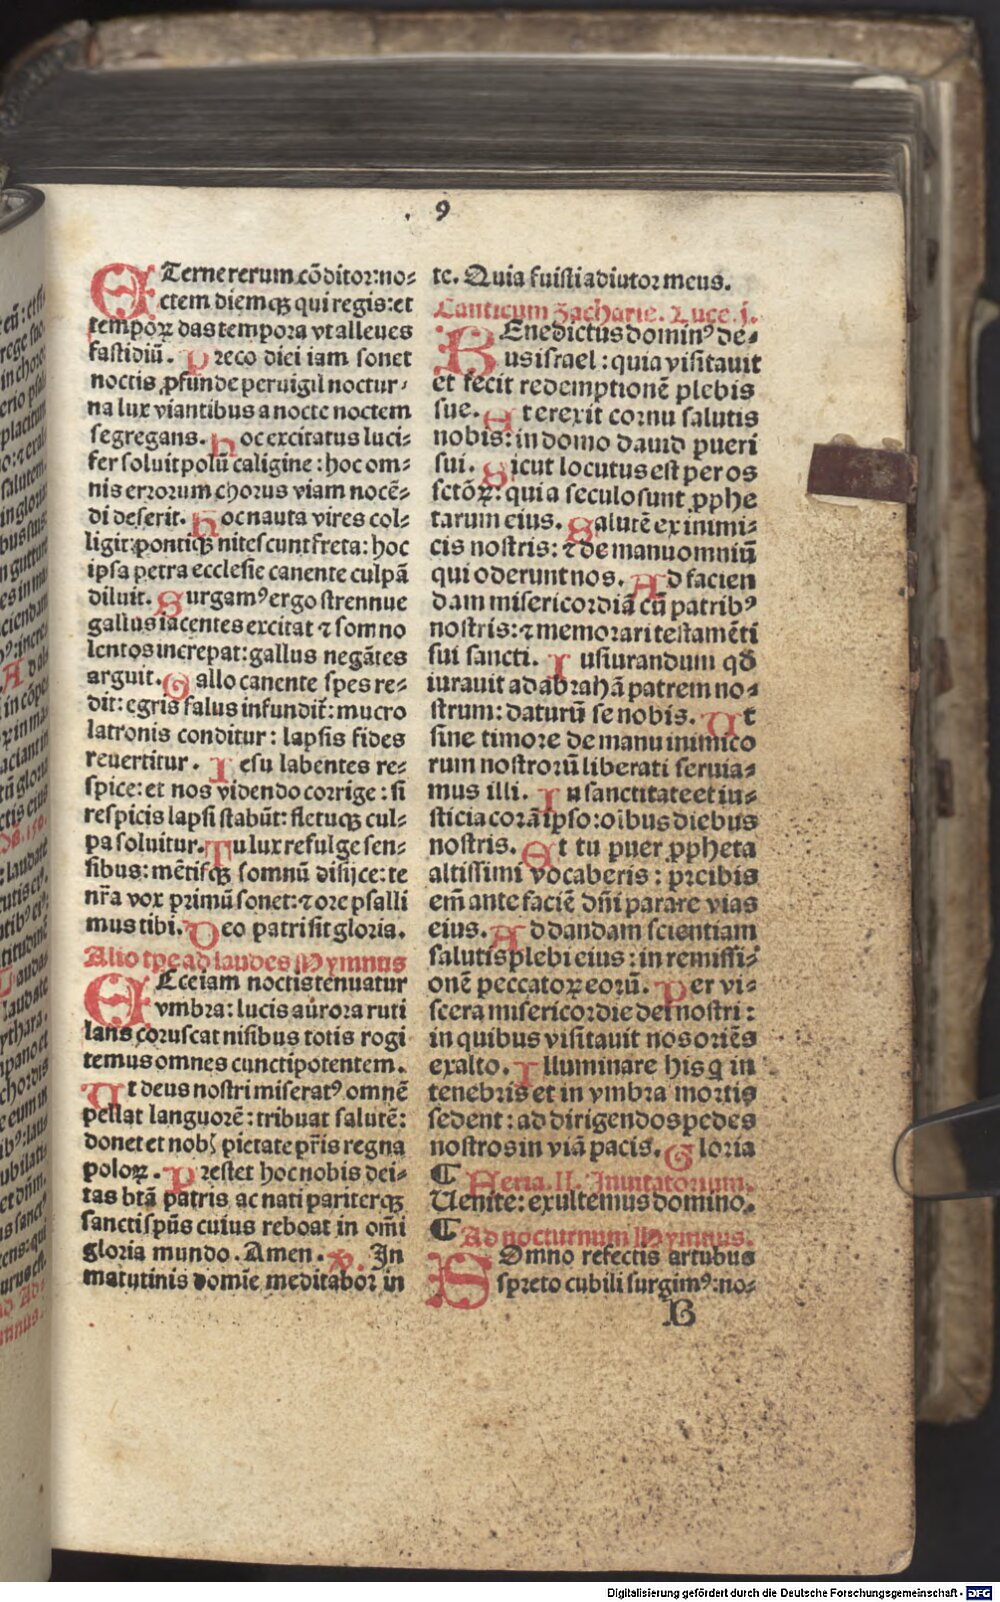 9
ETerne rerum cōditor: no⸗
ctem diemqꝫ qui regis: et
tempoꝝ das tempora vt alleues
fastidiū. Preco diei iam sonet
noctis ꝓfunde peruigil noctur⸗
na lux viantibus a nocte noctem
segregans. Hoc excitatus luci⸗
fer soluit polū caligine: hoc om⸗
nis errorum chorus viam nocē⸗
di deserit. Hoc nauta vires col⸗
ligit: pontiqꝫ nitescunt freta: hoc
ipsa petra ecclesie canente culpā
diluit. Surgamꝰ ergo strennue
gallus iacentes excitat ⁊ somno
lentos increpat: gallus negātes
arguit. Gallo canente spes re⸗
dit: egris salus infundit̄: mucro
latronis conditur: lapsis fides
reuertitur. Iesu labentes re⸗
spice: et nos videndo corrige: si
respicis lapsi stabūt: fletuqꝫ cul⸗
pa soluitur. Tu lux refulge sen⸗
sibus: mētisqꝫ somnū discijce: te
nr̄a vox primū sonet: ⁊ ore psalli
mus tibi. Deo patri sit gloria.
Alio tꝑe ad laudes Hymnus
ECce iam noctis tenuatur
vmbra: lucis aurora ruti
lans coruscat nisibus totis rogi
temus omnes cunctipotentem.
Ut deus nostri miseratꝰ omnē
pellat languorē: tribuat salutē:
donet et nobꝭ pietate pr̄is regna
poloꝝ. Prestet hoc nobis dei⸗
tas btā patris ac nati pariterqꝫ
sancti spūs cuius reboat in om̄i
gloria mundo. Amen. ℣. In
matutinis domie meditabor in
te. Quia fuisti adiutor meus.
Canticum Zacharie. Luce. j.
BEnedictus dominꝰ de⸗
us israel: quia visitauit
et fecit redemptionē plebis
sue. Et erexit cornu salutis
nobis: in domo dauid pueri
sui. Sicut locutus est per os
sctōꝝ: qui a seculo sunt ꝓphe
tarum eius. Salutē ex inimi⸗
cis nostris: ⁊ de manu omniū
qui oderunt nos. Ad facien
dam misericordiā cū patribꝰ
nostris: ⁊ memorari testamēti
sui sancti. Iusiurandum qđ
iurauit ad abrahā patrem no⸗
strum: daturū se nobis. Ut
sine timore de manu inimico
rum nostrorū liberati seruia⸗
mus illi. In sanctitate et iu⸗
sticia corā ipso: oībus diebus
nostris. Et tu puer ꝓpheta
altissimi vocaberis: preibis
em̄ ante faciē dn̄i parare vias
eius. Ad dandam scientiam
salutis plebi eius: in remissi⸗
onē peccatoꝝ eorū. Per vi⸗
scera misericordie dei nostri:
in quibus visitauit nos oriēs
ex alto. Illuminare his q̄ in
tenebris et in vmbra mortis
sedent: ad dirigendos pedes
nostros in viā pacis. Gloria
¶ Feria. II. Inuitatorium.
Uenite: exultemus domino.
¶ Ad nocturnum Hymnus.
SOmno refectis artubus
spreto cubili surgimꝰ: no⸗
B
Digitalisierung gefördert durch die Deutsche Forschungsgemeinschaft - DFG